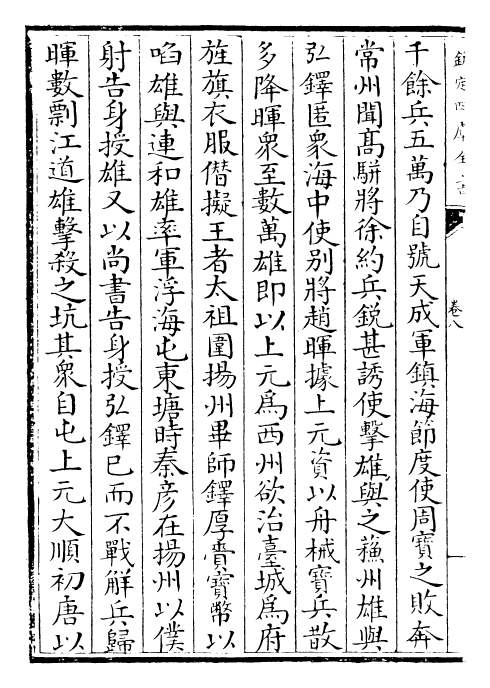 欽定四庫全書
卷八
千餘兵五萬乃自號天成軍鎮海節度使周寶之敗奔
常州聞高駢將徐約兵鋭甚誘使擊雄與之蘓州雄與
弘鐸匿衆海中使别將趙暉據上元資以舟械寶兵散
多降暉衆至數萬雄即以上元爲西州欲治臺城爲府
旌旗衣服僭擬王者太祖圍揚州畢師鐸厚賫寶幣以
啗雄與連和雄率軍浮海屯東塘時秦彦在揚州以僕
射告身授雄又以尚書告身授弘鐸已而不戰解兵歸
暉數剽江道雄擊殺之坑其衆自屯上元大順初唐以